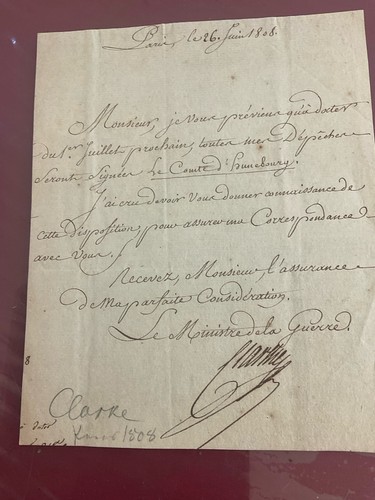 Paris, le 26. Juin 1808.
Monsieur, je vous préviens qu'à dater
du 1.er Juillet prochain, toutes mes Dépêches
seront Signées Le Comte d'hunebourg.
J'ai cru devoir Vous donner connaissance de
cette disposition, pour assurer ma Correspondance
avec Vous.
Recevez, Monsieur l'assurance
de ma parfaite Considération.
Le Ministre de la Guerre.
Clarke
8
Clarke
1808
à dater